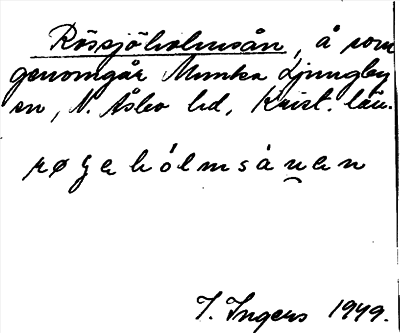 Rössjöholmsån, å som
genomgår Munka Ljungby
sn, N. Åsbo hd, Krist. län.
røʒehólmsån̯en
I. Ingers 1949.